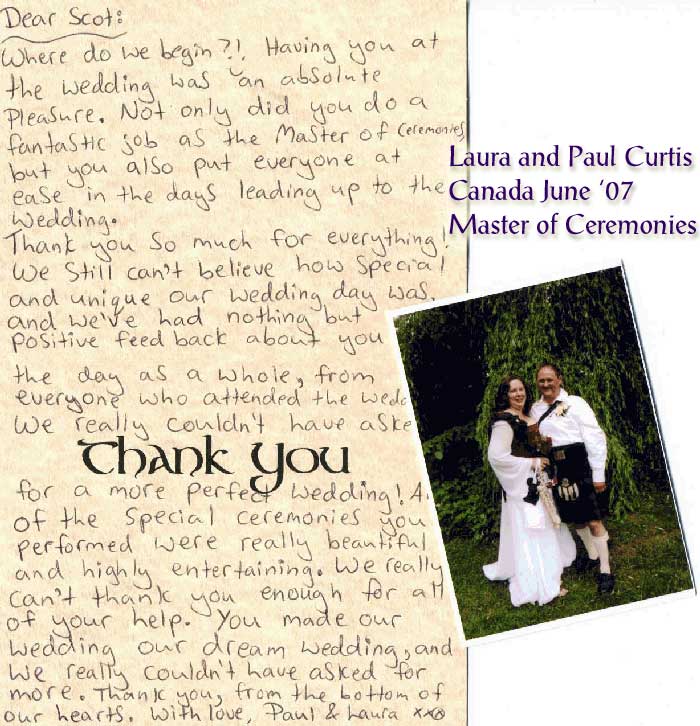 Dear Scot:
Where do we begin?!. Having you at
the wedding was an absolute
pleasure. Not only did you do a
fantastic job as the Master of Ceremonies,
but you also put everyone at
ease in the days leading up to the
wedding.
Thank you so much for everything!
We still can't believe how special
and unique our wedding day was,
and we've had nothing but
positive feed back about you
the day as a whole, from
everyone who attended the
We really couldn't have
Thank you
for a more perfect wedding!
of the special ceremonies you
performed were really beautiful
and highly entertaining. We really
can't thank you enough for all
of your help. You made our
wedding our dream wedding, and
we really couldn't have asked for
more. Thank you, from the bottom of
our hearts. With love, Paul & Laura xxo
Laura and Paul Curtis
Canada June '07
Master of Ceremonies